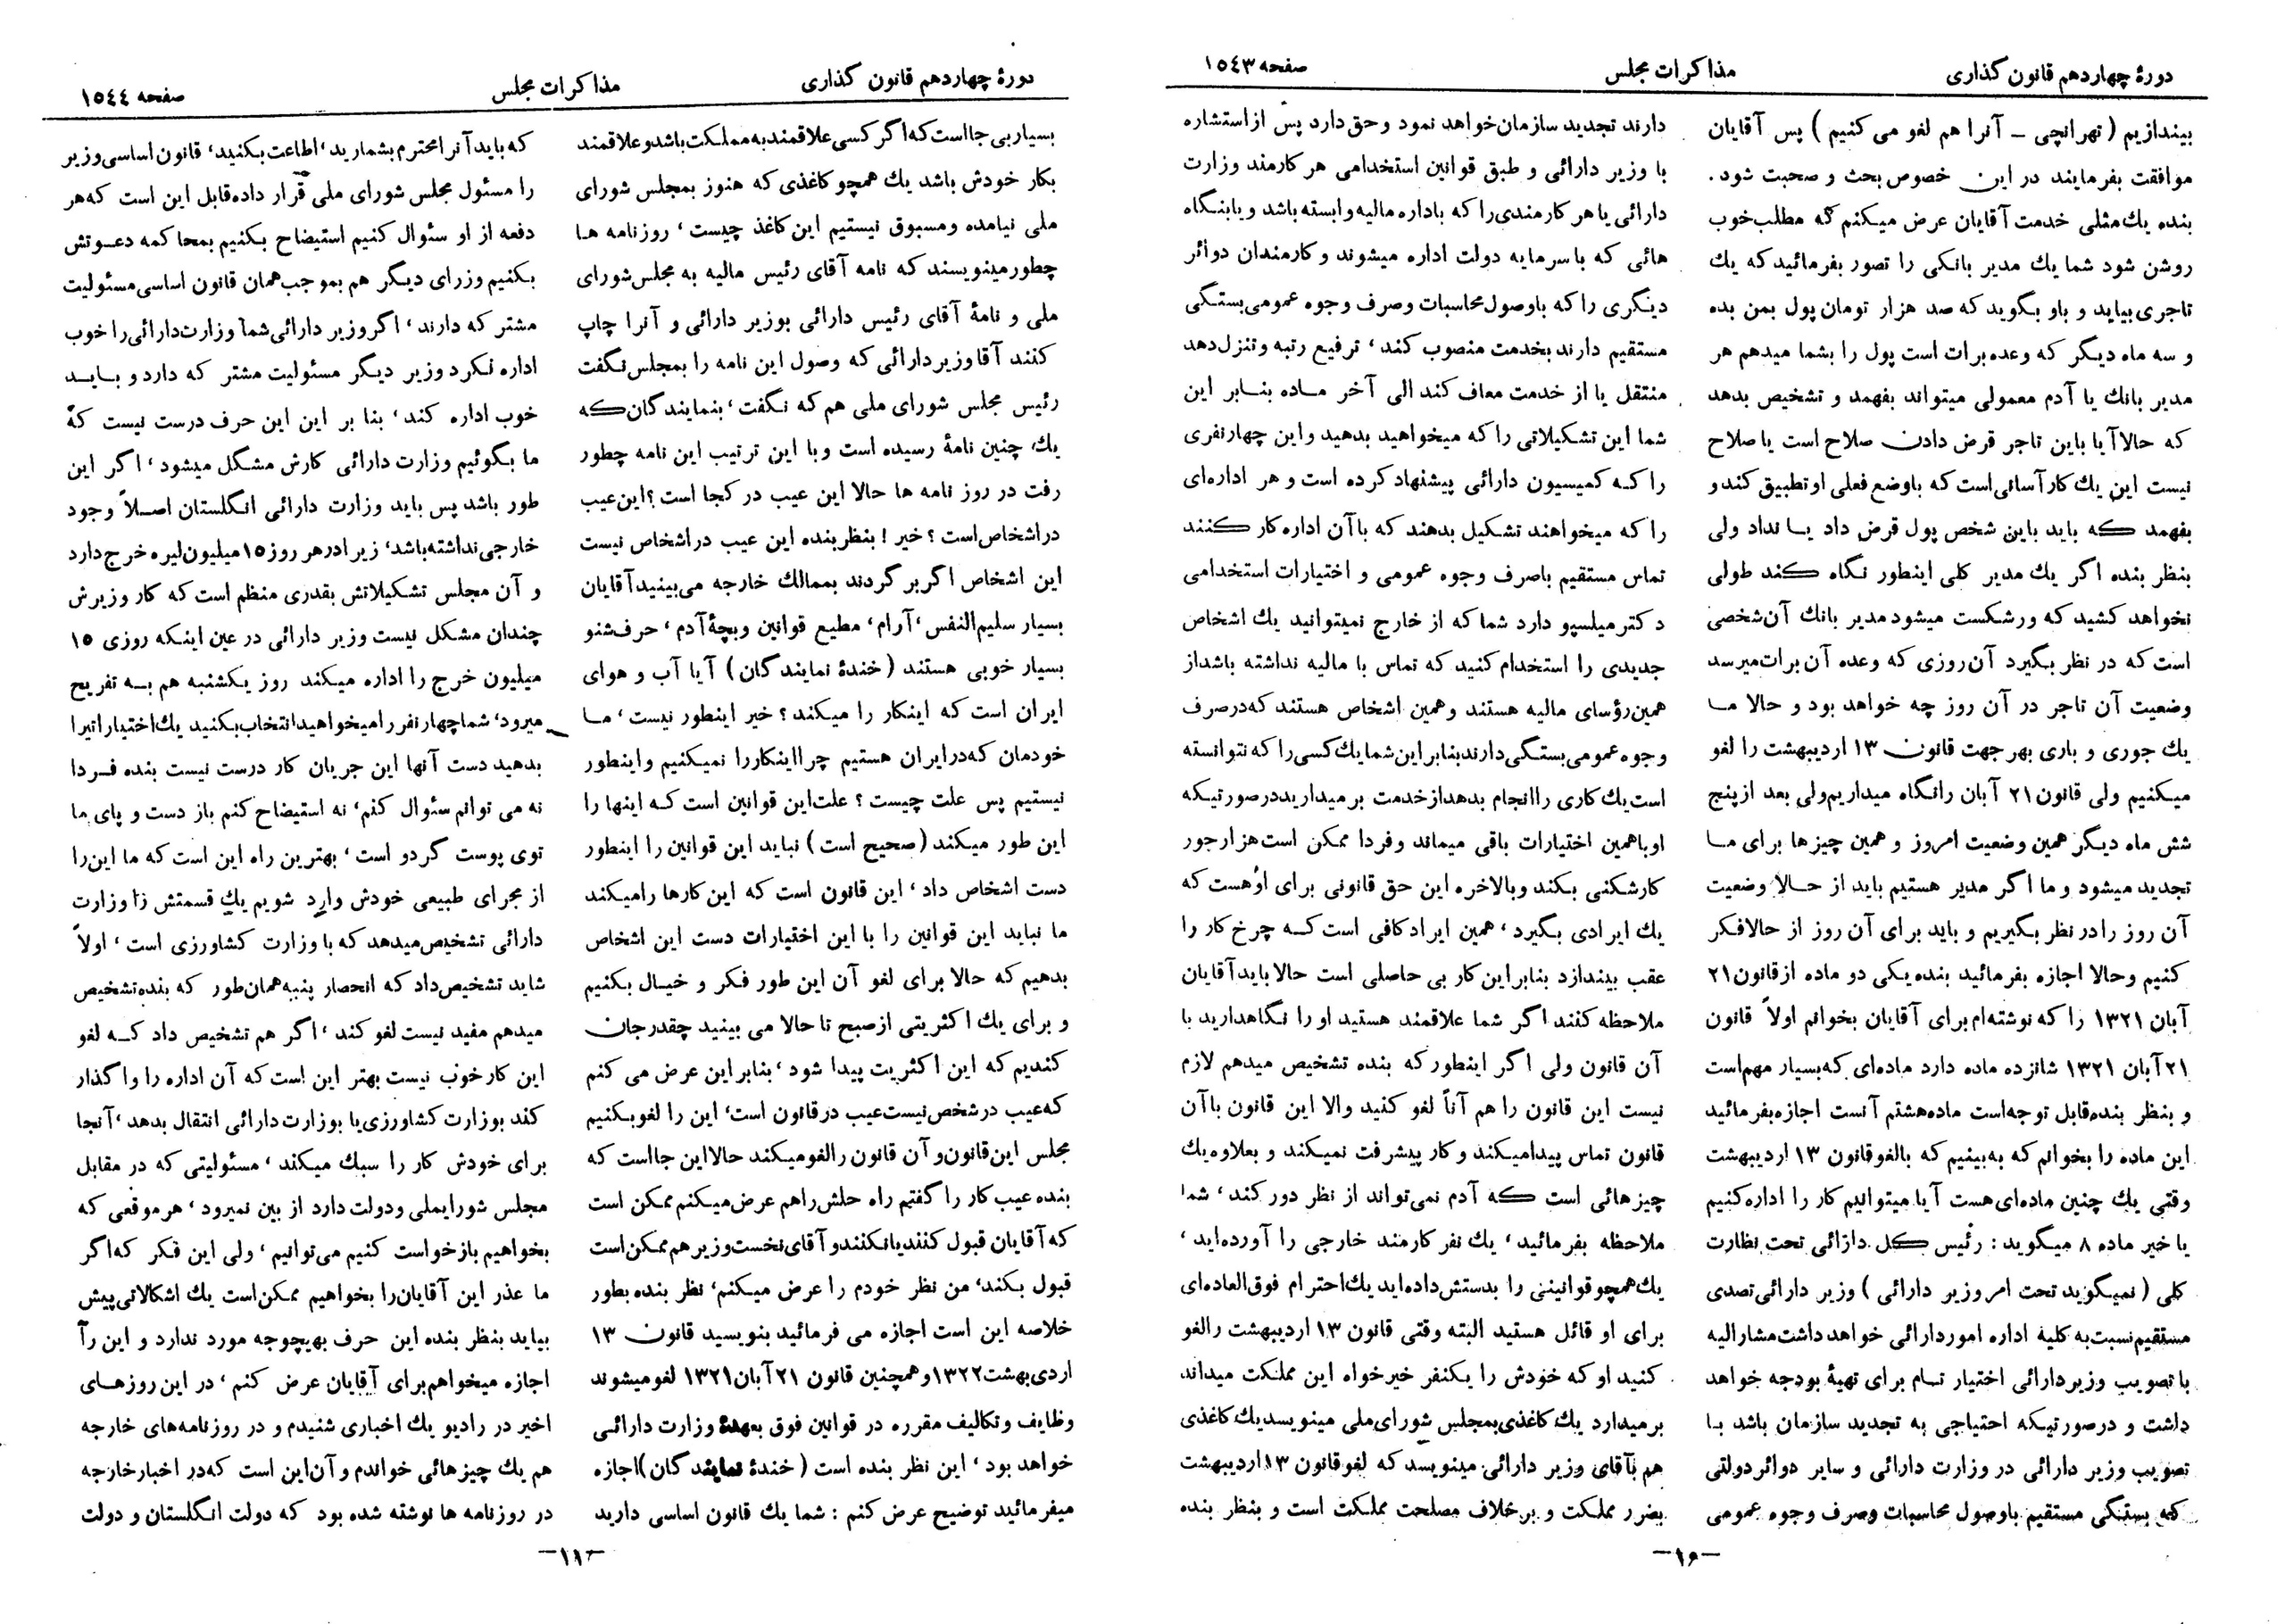 دورهٔ چهاردهم قانون گذاری
مذاکرات مجلس
صفحه ۱۵۴۳
بیندازیم (تهرانچی ـ آنرا هم لغو می کنیم) پس آقایان
موافقت بفرمایند در این خصوص بحث و صحبت شود.
بنده یك مثلی خدمت آقایان عرض میکنم که مطلب خوب
روشن شود شما یك مدیر بانکی را تصور بفرمائید که یك
تاجری بیاید و باو بگوید که صد هزار تومان پول بمن بده
و سه ماه دیگر که وعده برات است پول را بشما میدهم هر
مدیر بانك یا آدم معمولی میتواند بفهمد و تشخیص بدهد
که حالا آیا باین تاجر قرض دادن صلاح است یا صلاح
نیست این یك کار آسانی است که باوضع فعلی او تطبیق کند و
بفهمد که باید باین شخص پول قرض داد یا نداد ولی
بنظر بنده اگر یك مدیر کلی اینطور نگاه کند طولی
نخواهد کشید که ورشکست میشود مدیر بانك آن شخصی
است که در نظر بگیرد آن روزی که وعده آن برات میرسد
وضعیت آن تاجر در آن روز چه خواهد بود و حالا ما
یك جوری و باری بهر جهت قانون ۱۳ اردیبهشت را لغو
میکنیم ولی قانون ۲۱ آبان را نگاه میداریم ولی بعد از پنج
شش ماه دیگر همین وضعیت امروز و همین چیزها برای ما
تجدید میشود و ما اگر مدیر هستیم باید از حالا وضعیت
آن روز را در نظر بگیریم و باید برای آن روز از حالا فکر
کنیم و حالا اجازه بفرمائید بنده یکی دو ماده از قانون ۲۱
آبان ۱۳۲۱ را که نوشته‌ام برای آقایان بخوانم اولاً قانون
۲۱ آبان ۱۳۲۱ شانزده ماده دارد ماده‌ای که بسیار مهم است
و بنظر بنده قابل توجه است ماده هشتم آنست اجازه بفرمائید
این ماده را بخوانم که به بینیم که بالغو قانون ۱۳ اردیبهشت
وقتی یك چنین ماده‌ای هست آیا میتوانیم کار را اداره کنیم
یا خیر ماده ۸ میگوید: رئیس کل دارائی تحت نظارت
کلی (نمیگوید تحت امر وزیر دارائی) وزیر دارائی تصدی
مستقیم نسبت به کلیه اداره امور دارائی خواهد داشت مشارالیه
با تصویب وزیر دارائی اختیار تام برای تهیهٔ بودجه خواهد
داشت و در صورتیکه احتیاجی به تجدید سازمان باشد با
تصویب وزیر دارائی در وزارت دارائی و سایر دوائر دولتی
که بستگی مستقیم باوصول محاسبات وصرف وجوه عمومی
دارند تجدید سازمان خواهد نمود و حق دارد پس از استشاره
با وزیر دارائی و طبق قوانین استخدامی هر کارمند وزارت
دارائی یا هر کارمندی را که باداره مالیه وابسته باشد و یا بنگاه
هائی که با سرمایه دولت اداره میشوند و کارمندان دوائر
دیگری را که باوصول محاسبات وصرف وجوه عمومی بستگی
مستقیم دارند بخدمت منصوب کند، ترفیع رتبه و تنزل دهد
منتقل یا از خدمت معاف کند الی آخر ماده بنابر این
شما این تشکیلاتی را که میخواهید بدهید و این چهار نفری
را که کمیسیون دارائی پیشنهاد کرده است و هر اداره‌ای
را که میخواهند تشکیل بدهند که با آن اداره کار کنند
تماس مستقیم باصرف وجوه عمومی و اختیارات استخدامی
دکتر میلسپو دارد شما که از خارج نمیتوانید یك اشخاص
جدیدی را استخدام کنید که تماس با مالیه نداشته باشد از
همین رؤسای مالیه هستند و همین اشخاص هستند که در صرف
وجوه عمومی بستگی دارند بنابر این شما یك کسی را که نتوانسته
است یك کاری را انجام بدهد از خدمت بر میدارید در صورتیکه
او با همین اختیارات باقی میماند و فردا ممکن است هزار جور
کارشکنی بکند و بالاخره این حق قانونی برای او هست که
یك ایرادی بگیرد، همین ایراد کافی است که چرخ کار را
عقب بیندازد بنابر این کار بی حاصلی است حالا باید آقایان
ملاحظه کنند اگر شما علاقمند هستید او را نگاهدارید با
آن قانون ولی اگر اینطور که بنده تشخیص میدهم لازم
نیست این قانون را هم آناً لغو کنید والا این قانون با آن
قانون تماس پیدا میکند و کار پیشرفت نمیکند و بعلاوه یك
چیزهائی است که آدم نمی‌تواند از نظر دور کند، شما
ملاحظه بفرمائید، یك نفر کارمند خارجی را آورده‌اید،
یك همچو قوانینی را بدستش داده‌اید یك احترام فوق‌العاده‌ای
برای او قائل هستید البته وقتی قانون ۱۳ اردیبهشت را لغو
کنید او که خودش را یکنفر خیرخواه این مملکت میداند
برمیدارد یك کاغذی بمجلس شورای ملی مینویسد یك کاغذی
هم بآقای وزیر دارائی مینویسد که لغو قانون ۱۳ اردیبهشت
بضرر مملکت و برخلاف مصلحت مملکت است و بنظر بنده
ـ۱۶ـ
دورهٔ چهاردهم قانون گذاری
مذاکرات مجلس
صفحه ۱۵۴۴
بسیار بی جا است که اگر کسی علاقمند به مملکت باشد و علاقمند
بکار خودش باشد یك همچو کاغذی که هنوز بمجلس شورای
ملی نیامده و مسبوق نیستیم این کاغذ چیست، روزنامه ها
چطور مینویسند که نامه آقای رئیس مالیه به مجلس شورای
ملی و نامهٔ آقای رئیس دارائی بوزیر دارائی و آنرا چاپ
کنند آقا وزیر دارائی که وصول این نامه را بمجلس نگفت
رئیس مجلس شورای ملی هم که نگفت، بنمایندگان که
یك چنین نامهٔ رسیده است و با این ترتیب این نامه چطور
رفت در روز نامه ها حالا این عیب در کجا است؟ این عیب
در اشخاص است؟ خیر! بنظر بنده این عیب در اشخاص نیست
این اشخاص اگر بر گردند بممالك خارجه می‌بینید آقایان
بسیار سلیم النفس، آرام، مطیع قوانین و بچهٔ آدم، حرف شنو
بسیار خوبی هستند (خندهٔ نمایندگان) آیا آب و هوای
ایران است که اینکار را میکند؟ خیر اینطور نیست، ما
خودمان که در ایران هستیم چرا اینکار را نمیکنیم و اینطور
نیستیم پس علت چیست؟ علت این قوانین است که اینها را
این طور میکند (صحیح است) نباید این قوانین را اینطور
دست اشخاص داد، این قانون است که این کارها را میکند
ما نباید این قوانین را با این اختیارات دست این اشخاص
بدهیم که حالا برای لغو آن این طور فکر و خیال بکنیم
و برای یك اکثریتی از صبح تا حالا می بینید چقدر جان
کندیم که این اکثریت پیدا شود، بنابر این عرض می کنم
که عیب در شخص نیست عیب در قانون است، این را لغو بکنیم
مجلس این قانون و آن قانون را لغو میکند حالا این جا است که
بنده عیب کار را گفتم راه حلش را هم عرض میکنم ممکن است
که آقایان قبول کنند یا نکنند و آقای نخست وزیر هم ممکن است
قبول بکند، من نظر خودم را عرض میکنم، نظر بنده بطور
خلاصه این است اجازه می فرمائید بنویسید قانون ۱۳
اردی بهشت ۱۳۲۲ و همچنین قانون ۲۱ آبان ۱۳۲۱ لغو میشوند
وظایف و تکالیف مقرره در قوانین فوق بعهدهٔ وزارت دارائی
خواهد بود، این نظر بنده است (خندهٔ نمایندگان) اجازه
میفرمائید توضیح عرض کنم: شما یك قانون اساسی دارید
که باید آنرا محترم بشمارید، اطاعت بکنید، قانون اساسی وزیر
را مسئول مجلس شورای ملی قرار داده قابل این است که هر
دفعه از او سئوال کنیم استیضاح بکنیم بمحاکمه دعوتش
بکنیم وزرای دیگر هم بموجب همان قانون اساسی مسئولیت
مشترك دارند، اگر وزیر دارائی شما وزارت دارائی را خوب
اداره نکرد وزیر دیگر مسئولیت مشترك دارد و باید
خوب اداره کند، بنا بر این این حرف درست نیست که
ما بگوئیم وزارت دارائی کارش مشکل میشود، اگر این
طور باشد پس باید وزارت دارائی انگلستان اصلاً وجود
خارجی نداشته باشد، زیرا در هر روز ۱۵ میلیون لیره خرج دارد
و آن مجلس تشکیلاتش بقدری منظم است که کار وزیرش
چندان مشکل نیست وزیر دارائی در عین اینکه روزی ۱۵
میلیون خرج را اداره میکند روز یکشنبه هم به تفریح
میرود، شما چهار نفر را میخواهید انتخاب بکنید یك اختیاراتیرا
بدهید دست آنها این جریان کار درست نیست بنده فردا
نه می توانم سئوال کنم، نه استیضاح کنم باز دست و پای ما
توی پوست گردو است، بهترین راه این است که ما این را
از مجرای طبیعی خودش وارد شویم یك قسمتش را وزارت
دارائی تشخیص میدهد که با وزارت کشاورزی است، اولاً
شاید تشخیص داد که انحصار پنبه همان طور که بنده تشخیص
میدهم مفید نیست لغو کند، اگر هم تشخیص داد که لغو
این کار خوب نیست بهتر این است که آن اداره را واگذار
کند بوزارت کشاورزی یا بوزارت دارائی انتقال بدهد، آنجا
برای خودش کار را سبك میکند، مسئولیتی که در مقابل
مجلس شورایملی و دولت دارد از بین نمیرود، هر موقعی که
بخواهیم بازخواست کنیم می‌توانیم، ولی این فکر که اگر
ما عذر این آقایان را بخواهیم ممکن است یك اشکالاتی پیش
بیاید بنظر بنده این حرف بهیچوجه مورد ندارد و این را
اجازه میخواهم برای آقایان عرض کنم، در این روزهای
اخیر در رادیو یك اخباری شنیدم و در روزنامه‌های خارجه
هم یك چیزهائی خواندم و آن این است که در اخبار خارجه
در روزنامه ها نوشته شده بود که دولت انگلستان و دولت